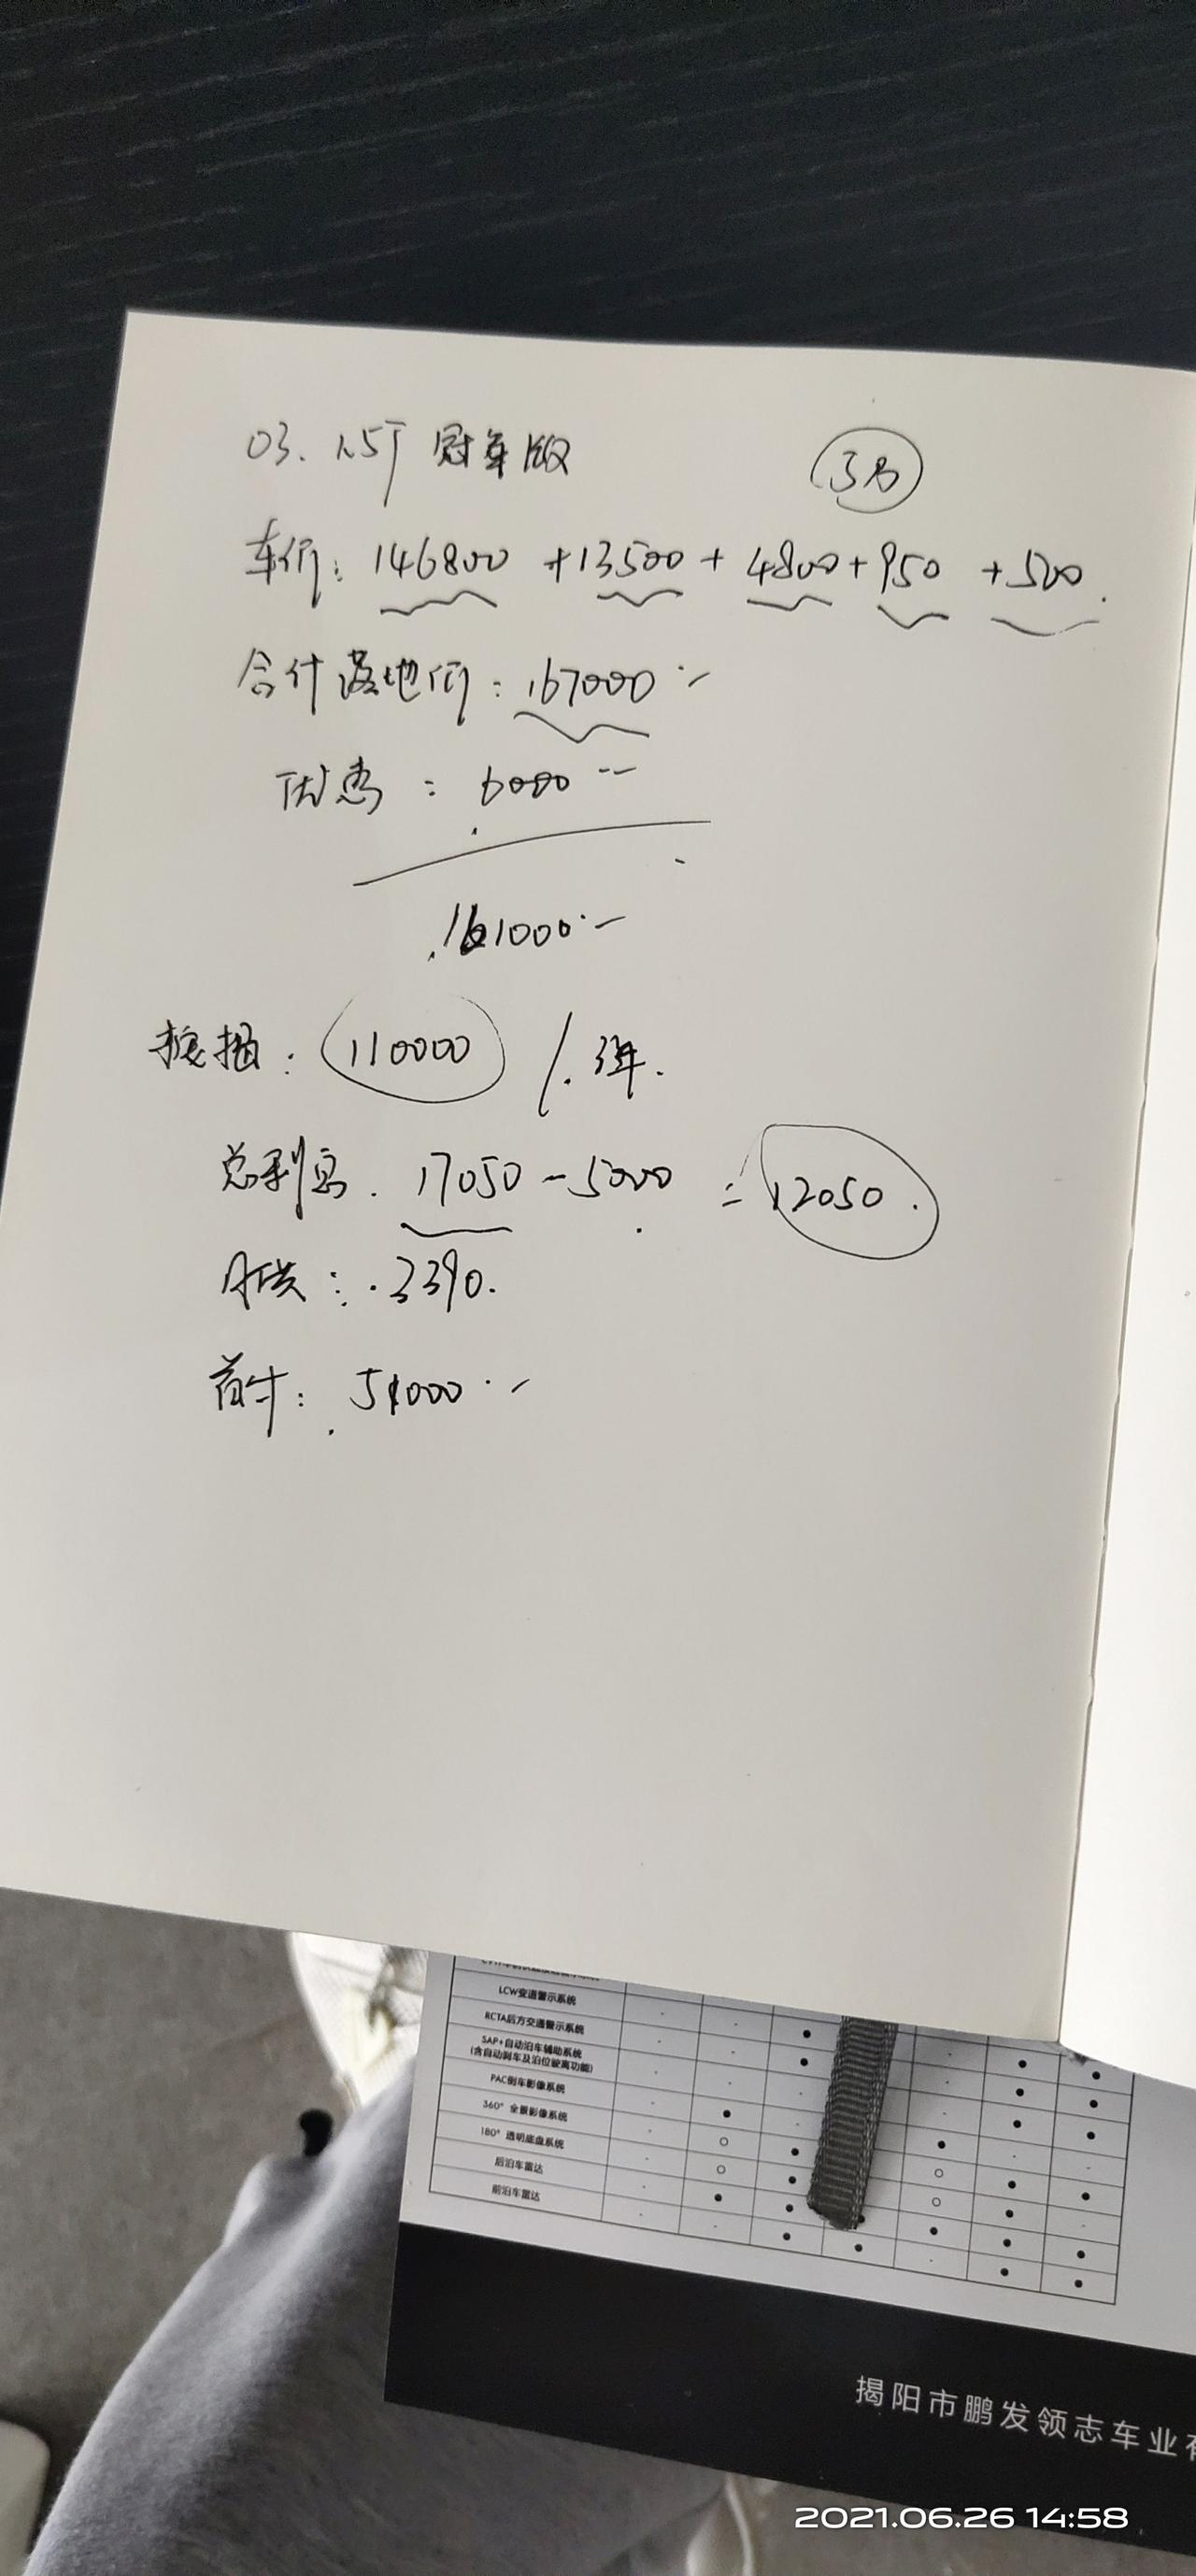 03. 1.5T 冠军版
车价: 146800 +13500 + 4800 + 950 + 500.
合计落地价: 167000
优惠: 6000
161000
按揭: 110000 / 3年.
总利息. 17050 - 5000 = 12050.
月供: 3390.
首付: 51000
LCW变道警示系统
RCTA后方交通警示系统
SAP+自动泊车辅助系统
(含自动刹车及泊位驶离功能)
PAC倒车影像系统
360° 全景影像系统
180° 透明底盘系统
后泊车雷达
前泊车雷达
揭阳市鹏发领志车业有
2021.06.26 14:58